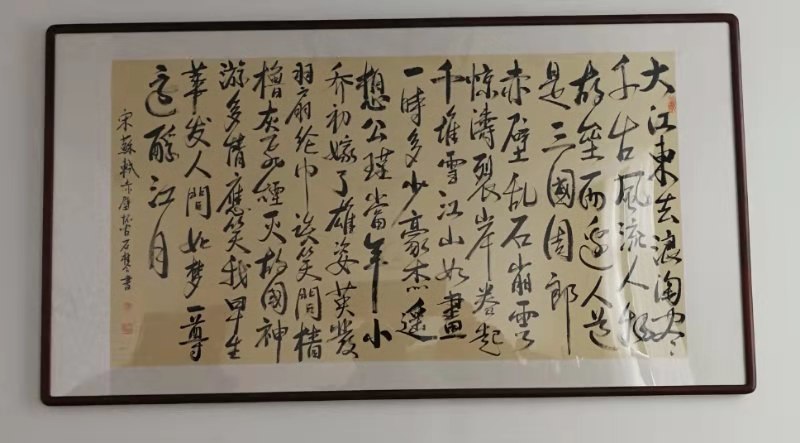 大江東去浪淘尽
千古風流人物
故垒西邊人道
是三國周郎
赤壁乱石崩雲
惊濤裂岸卷起
千堆雪江山如畫
一时多少豪杰遥
想公瑾當年小
乔初嫁了雄姿英發
羽扇纶巾谈笑間樯
橹灰飞煙灭故國神
游多情應笑我早生
華发人間如梦一尊
还酹江月
宋蘇軾赤壁怀古石書